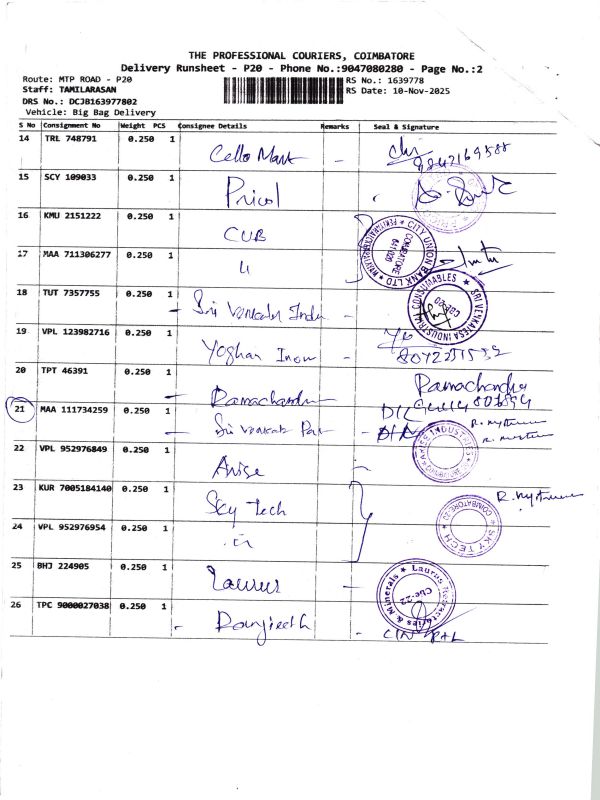 THE PROFESSIONAL COURIERS, COIMBATORE
Delivery Runsheet - P20 - Phone No.:9047080280 - Page No.:2
Route: MTP ROAD - P20 RS No.: 1639778
Staff: TAMILARASAN RS Date: 10-Nov-2025
DRS No.: DCJB163977802
Vehicle: Big Bag Delivery
S No Consignment No Weight PCS Consignee Details Remarks Seal & Signature
14 TRL 748791 0.250 1 Cello Mark -
15 SCY 109033 0.250 1 Pricol
16 KMU 2151222 0.250 1 CUB
CITY UNION BANK LTD
COIMBATORE
641020
17 MAA 711306277 0.250 1 "
18 TUT 7357755 0.250 1 - Sri Venkates Indu -
SRI VENKATESA INDUSTRIAL CONSUMABLES
CBE-20
19 VPL 123982716 0.250 1 Yoghan Inow -
20 TPT 46391 0.250 1 - Ramachandra Ramachandra
21 MAA 111734259 0.250 1 - Sri Venkat Par -
INDUSTRIES
22 VPL 952976849 0.250 1 Arise -
23 KUR 7005184140 0.250 1 Sky Tech
SKY TECH
COIMBATORE
24 VPL 952976954 0.250 1 "
25 BHJ 224905 0.250 1 Laurus -
Laurus Refractories & Minerals
Cbe-22
26 TPC 9000027038 0.250 1 - Ranjeeth -